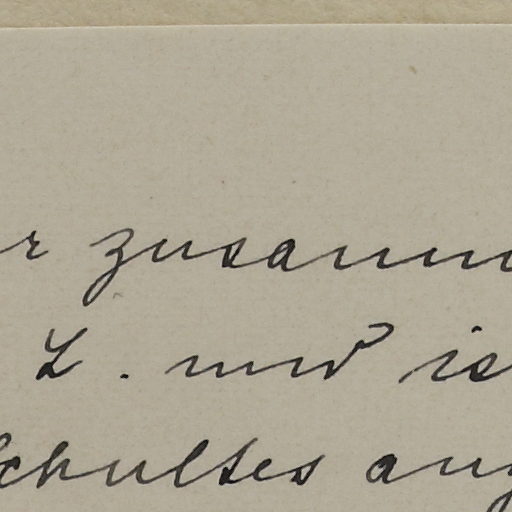 r zusamm
L. und is
Schultes ang